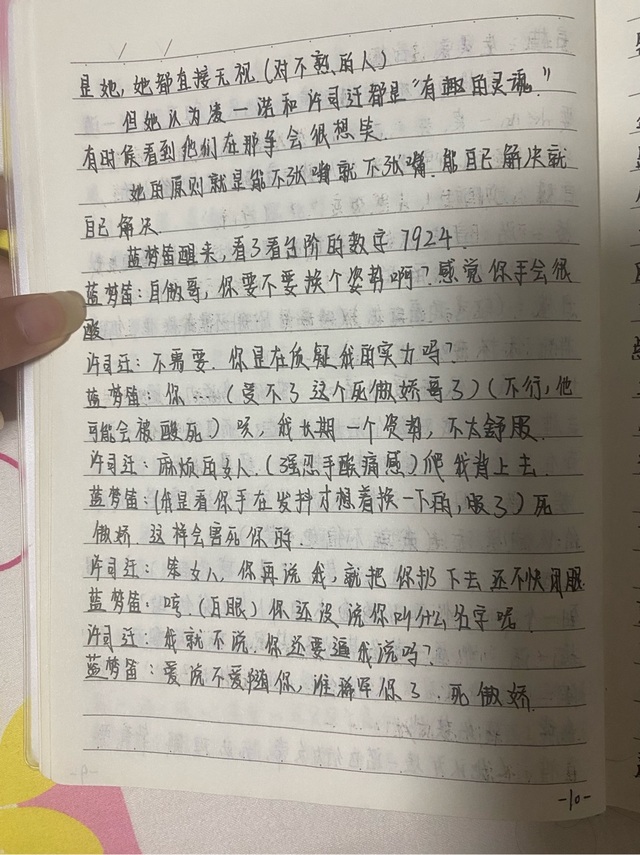 是她，她都直接无视（对不熟的人）
但她认为凌一诺和许司迁都是“有趣的灵魂”
有时候看到他们在那争会很想笑
她的原则就是能不张嘴就不张嘴，能自己解决就
自己解决
蓝梦笛醒来，看了看台阶的数字 7924.
蓝梦笛：自傲哥，你要不要换个姿势啊？感觉你手会很
酸
许司迁：不需要．你是在质疑我的实力吗？
蓝梦笛：你……（受不了这个死傲娇哥了）（不行，他
可能会被酸死）咳，我长期一个姿势，不太舒服
许司迁：麻烦的女人．（强忍手酸痛感）爬我背上去．
蓝梦笛：（我是看你手在发抖才想着换一下的，服了）死
傲娇．这样会害死你的．
许司迁：笨女人，你再说我，就把你扔下去 还不快闭眼
蓝梦笛：哼（白眼）你还没说你叫什么名字呢．
许司迁：我就不说．你还要逼我说吗？
蓝梦笛：爱说不爱随你，谁稀罕你了．死傲娇．
-10-